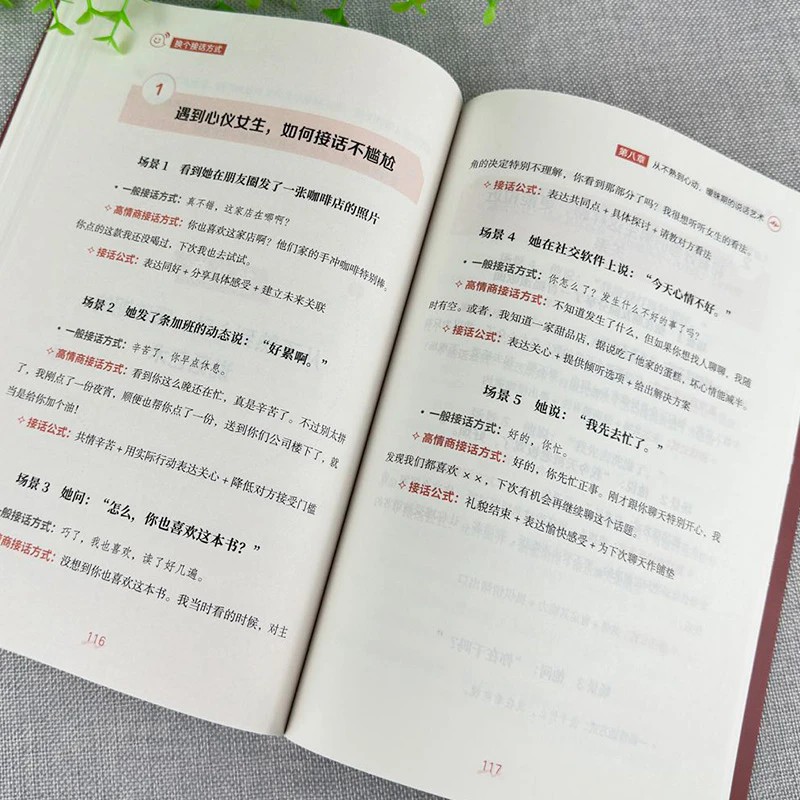 换个接话方式
1
遇到心仪女生，如何接话不尴尬
场景 1 看到她在朋友圈发了一张咖啡店的照片
·一般接话方式：真不错，这家店在哪啊？
高情商接话方式：你也喜欢这家店啊？他们家的手冲咖啡特别棒。
你点的这款我还没喝过，下次我也去试试。
接话公式：表达同好＋分享具体感受＋建立未来关联
场景 2 她发了条加班的动态说：“好累啊。”
·一般接话方式：辛苦了，你早点休息。
高情商接话方式：看到你这么晚还在忙，真是辛苦了。不过别太拼
了，我刚点了一份夜宵，顺便也帮你点了一份，送到你们公司楼下了，就
当是给你加个油！
接话公式：共情辛苦＋用实际行动表达关心＋降低对方接受门槛
场景 3 她问：“怎么，你也喜欢这本书？”
一般接话方式：巧了，我也喜欢，读了好几遍。
商接话方式：没想到你也喜欢这本书。我当时看的时候，对主
116
第八章 从不熟到心动，暧昧期的说话艺术
角的决定特别不理解，你看到那部分了吗？我很想听听女生的看法。
接话公式：表达共同点＋具体探讨＋请教对方看法
场景 4 她在社交软件上说：“今天心情不好。”
·一般接话方式：你怎么了？发生什么不好的事了吗？
高情商接话方式：不知道发生了什么，但如果你想找人聊聊，我随
时有空。或者，我知道一家甜品店，据说吃了他家的蛋糕，坏心情能减半。
接话公式：表达关心＋提供倾听选项＋给出解决方案
场景 5 她说：“我先去忙了。”
·一般接话方式：好的，你忙。
高情商接话方式：好的，你先忙正事。刚才跟你聊天特别开心，我
发现我们都喜欢 ××，下次有机会再继续聊这个话题。
接话公式：礼貌结束＋表达愉快感受＋为下次聊天作铺垫
117